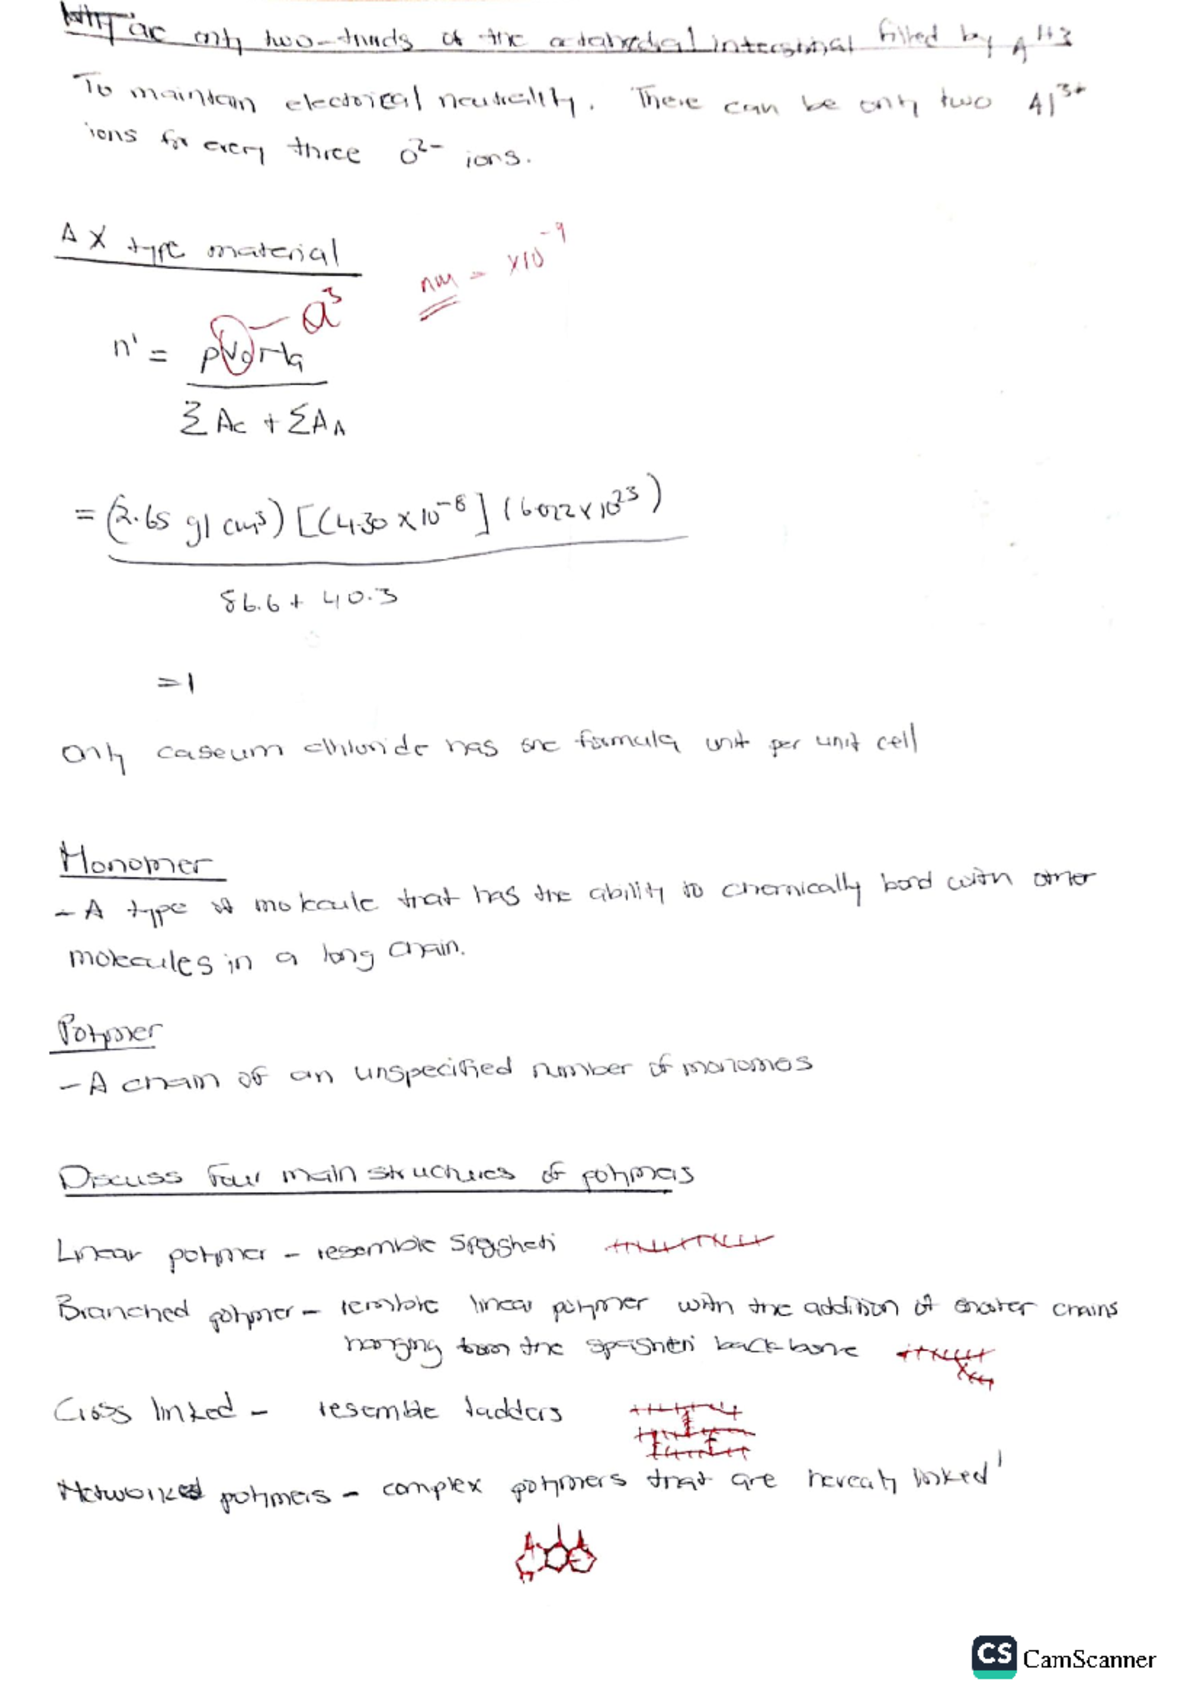 Why are only two-thirds of the octahedral interstitial filled by Al+3
To maintain electrical neutrality. There can be only two Al³⁺
ions for every three O²⁻ ions.
AX type material
nm = x10⁻⁹
a³
n' =
ΣAc + ΣAA
= (2.65 g/cm³) [(4.30 x 10⁻⁸] (6.022 x 10²³)
86.6 + 40.3
= 1
Only caseum chloride has one formula unit per unit cell
Monomer
- A type of molecule that has the ability to chemically bond with other
molecules in a long chain.
Polymer
- A chain of an unspecified number of monomes
Discuss four main structures of polymers
Linear polymer - resemble spagheti
Branched polymer - resmble linear polymer with the addition of shorter chains
hanging from the spagheti back-bone
Cross linked - resemble ladders
Networked polymers - complex polymers that are heavealy linked
CS CamScanner